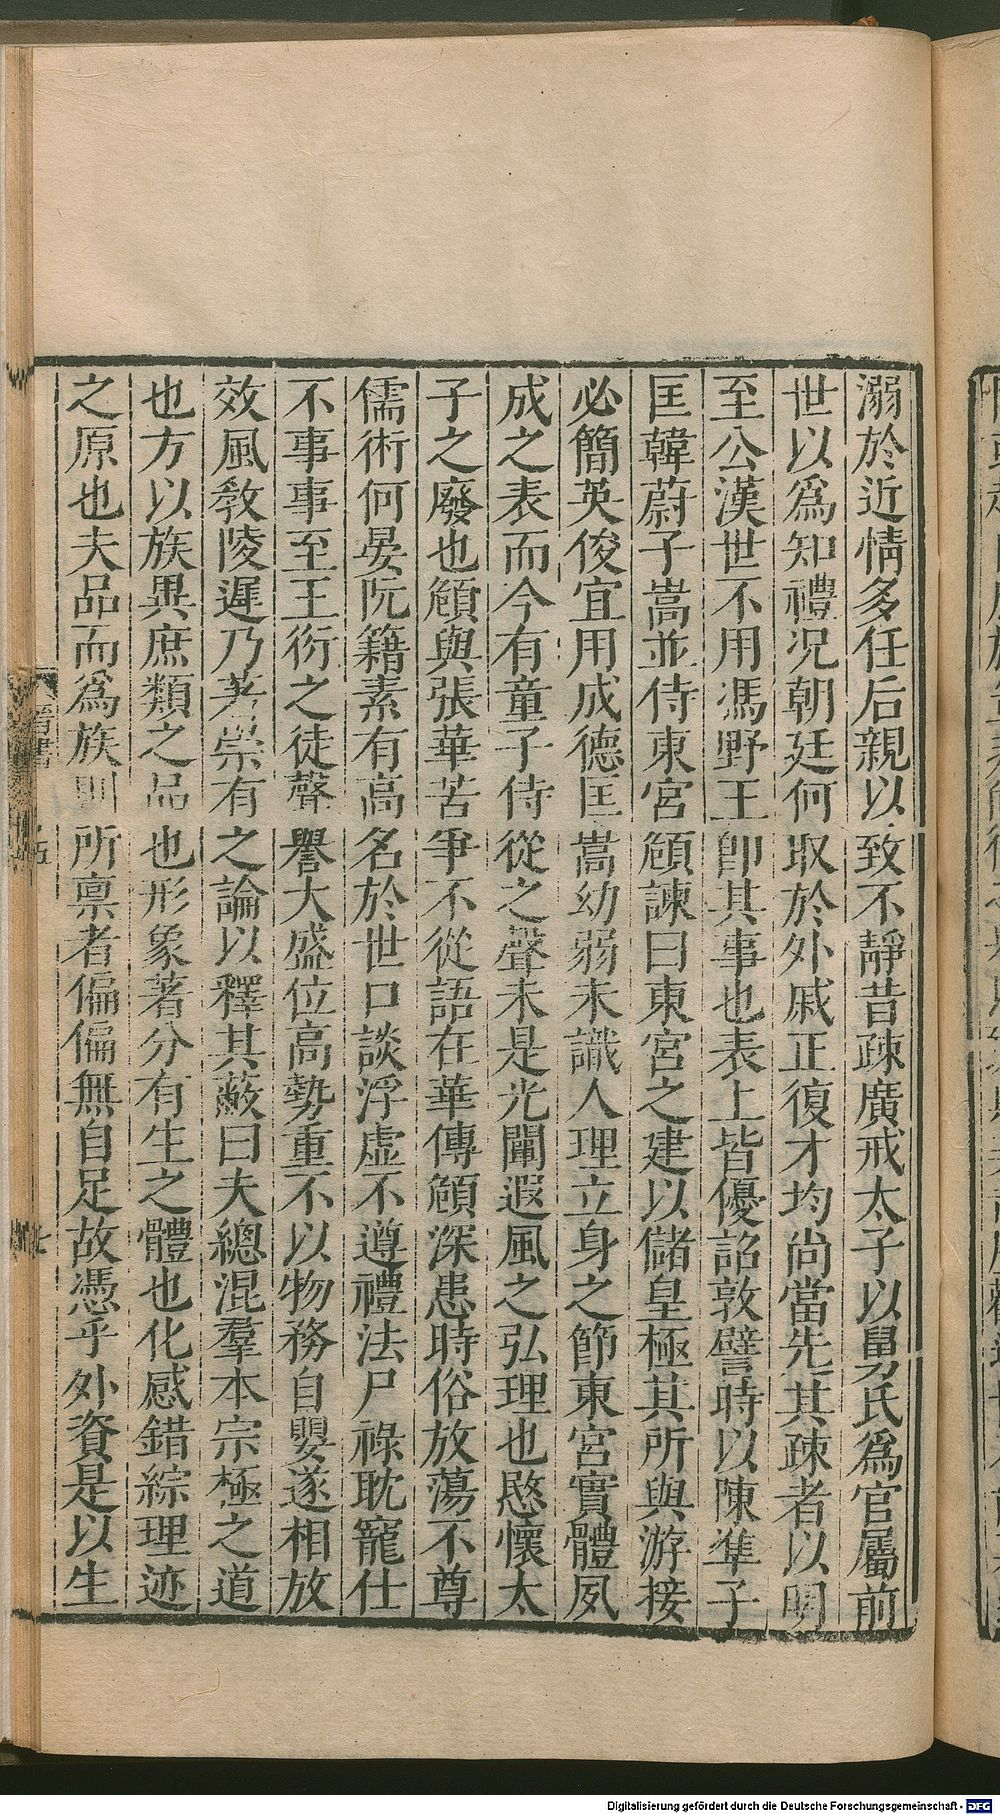 溺於近情多任后親以致不靜昔疎廣戒太子以舅氏爲官屬前
世以爲知禮况朝廷何取於外戚正復才均尚當先其疎者以明
至公漢世不用馮野王卽其事也表上皆優詔敦譬時以陳準子
匡韓蔚子嵩並侍東宮頠諫曰東宮之建以儲皇極其所與游接
必簡英俊宜用成德匡嵩幼弱未識人理立身之節東宮實體夙
成之表而今有童子侍從之聲未是光闡遐風之弘理也愍懷太
子之廢也頠與張華苦爭不從語在華傳頠深患時俗放蕩不尊
儒術何晏阮籍素有高名於世口談浮虛不遵禮法尸祿耽寵仕
不事事至王衍之徒聲譽大盛位高勢重不以物務自嬰遂相放
效風教陵遲乃著崇有之論以釋其蔽曰夫總混羣本宗極之道
也方以族異庶類之品也形象著分有生之體也化感錯綜理迹
之原也夫品而爲族則所禀者偏偏無自足故憑乎外資是以生
晉書
Digitalisierung gefördert durch die Deutsche Forschungsgemeinschaft - DFG